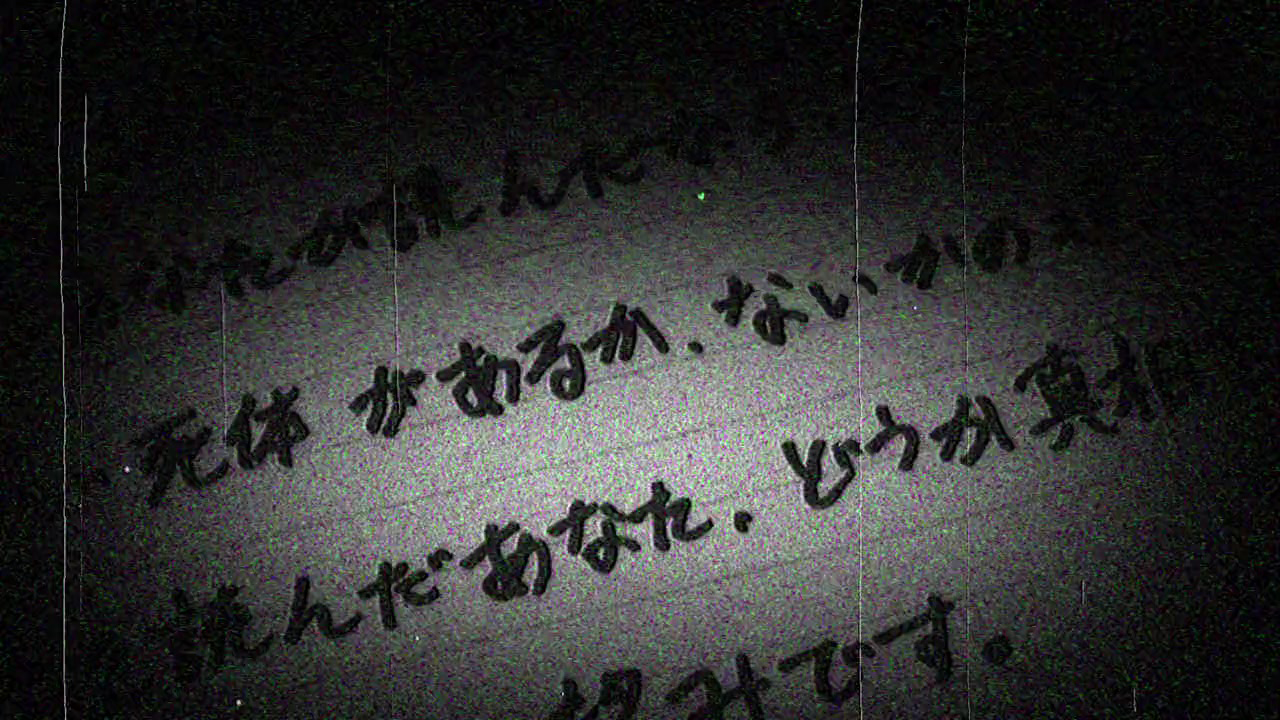 なたが読んだ
死体があるか、ないかの
読んだあなた、どうか真相
望みです。